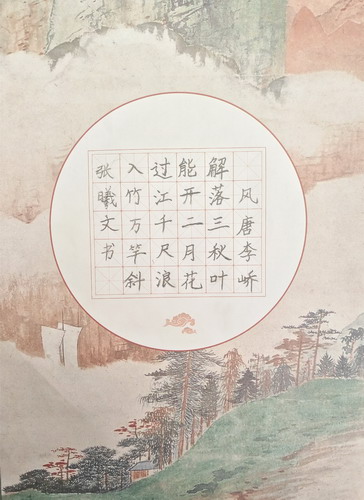 风唐李峤
解落三秋叶
能开二月花
过江千尺浪
入竹万竿斜
张曦文书